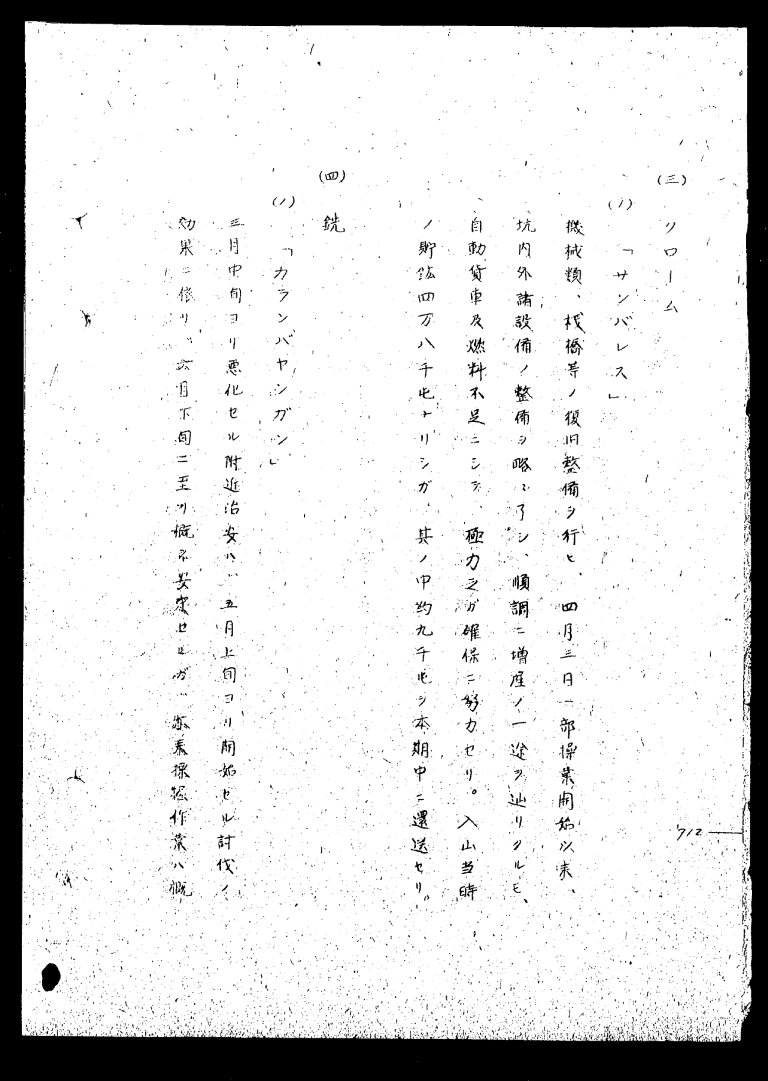 (三) クローム
(1) 「サンバレス」
機械類、桟橋等ノ復旧整備ヲ行ヒ、四月三日一部操業開始以来、
坑内外諸設備ノ整備ヲ略々了シ、順調ニ増産ノ一途ヲ辿リタルモ、
自動貨車及燃料不足ニシテ、極力之ガ確保ニ努力セリ。入山当時
ノ貯鉱四万八千屯ナリシガ、其ノ中約九千屯ヲ本期中ニ還送セリ。
(四) 銑
(1) 「カランバヤンガン」
三月中旬ヨリ悪化セル附近治安ハ、五月上旬ヨリ開始セル討伐ノ
効果ニ依リ、六月下旬ニ至リ概ネ安定セルガ、採掘作業ハ概
712